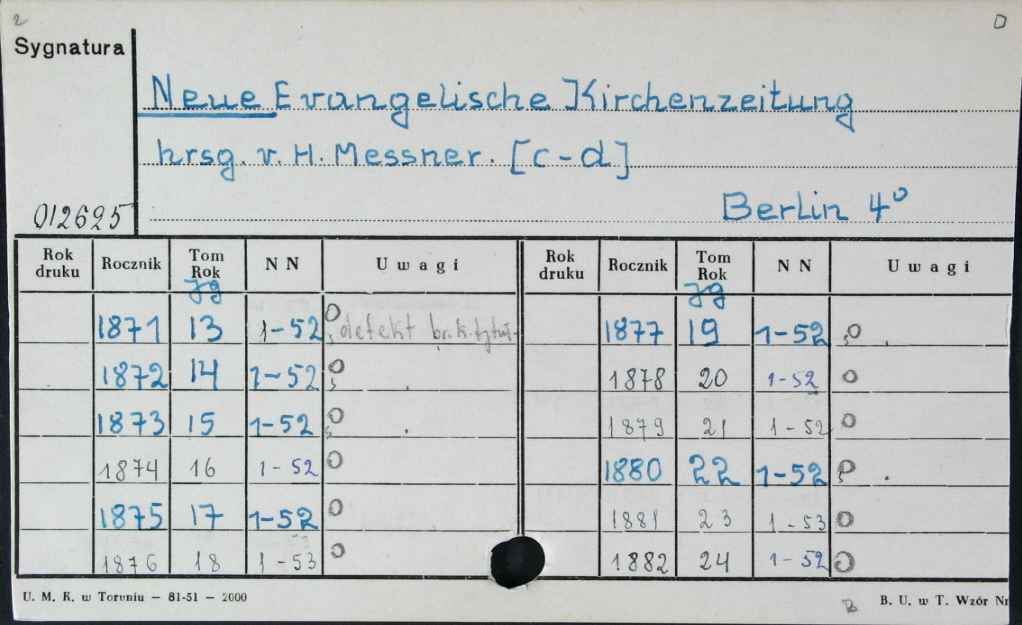 2
Sygnatura
Neue Evangelische Kirchenzeitung
hrsg. v. H. Messner. [c-d]
012695
Berlin 4°
Rok druku Rocznik Tom Rok NN Uwagi Rok druku Rocznik Tom Rok NN Uwagi
Jg Jg
1871 13 1-52 0 defekt br. k. tytuł. 1877 19 1-52 0
1872 14 1-52 0 1878 20 1-52 0
1873 15 1-52 0 1879 21 1-52 0
1874 16 1-52 0 1880 22 1-52
1875 17 1-52 0 1881 23 1-53 0
1876 18 1-53 0 1882 24 1-52 0
U. M. K. w Toruniu — 81-51 — 2000
B. U. w T. Wzór Nr